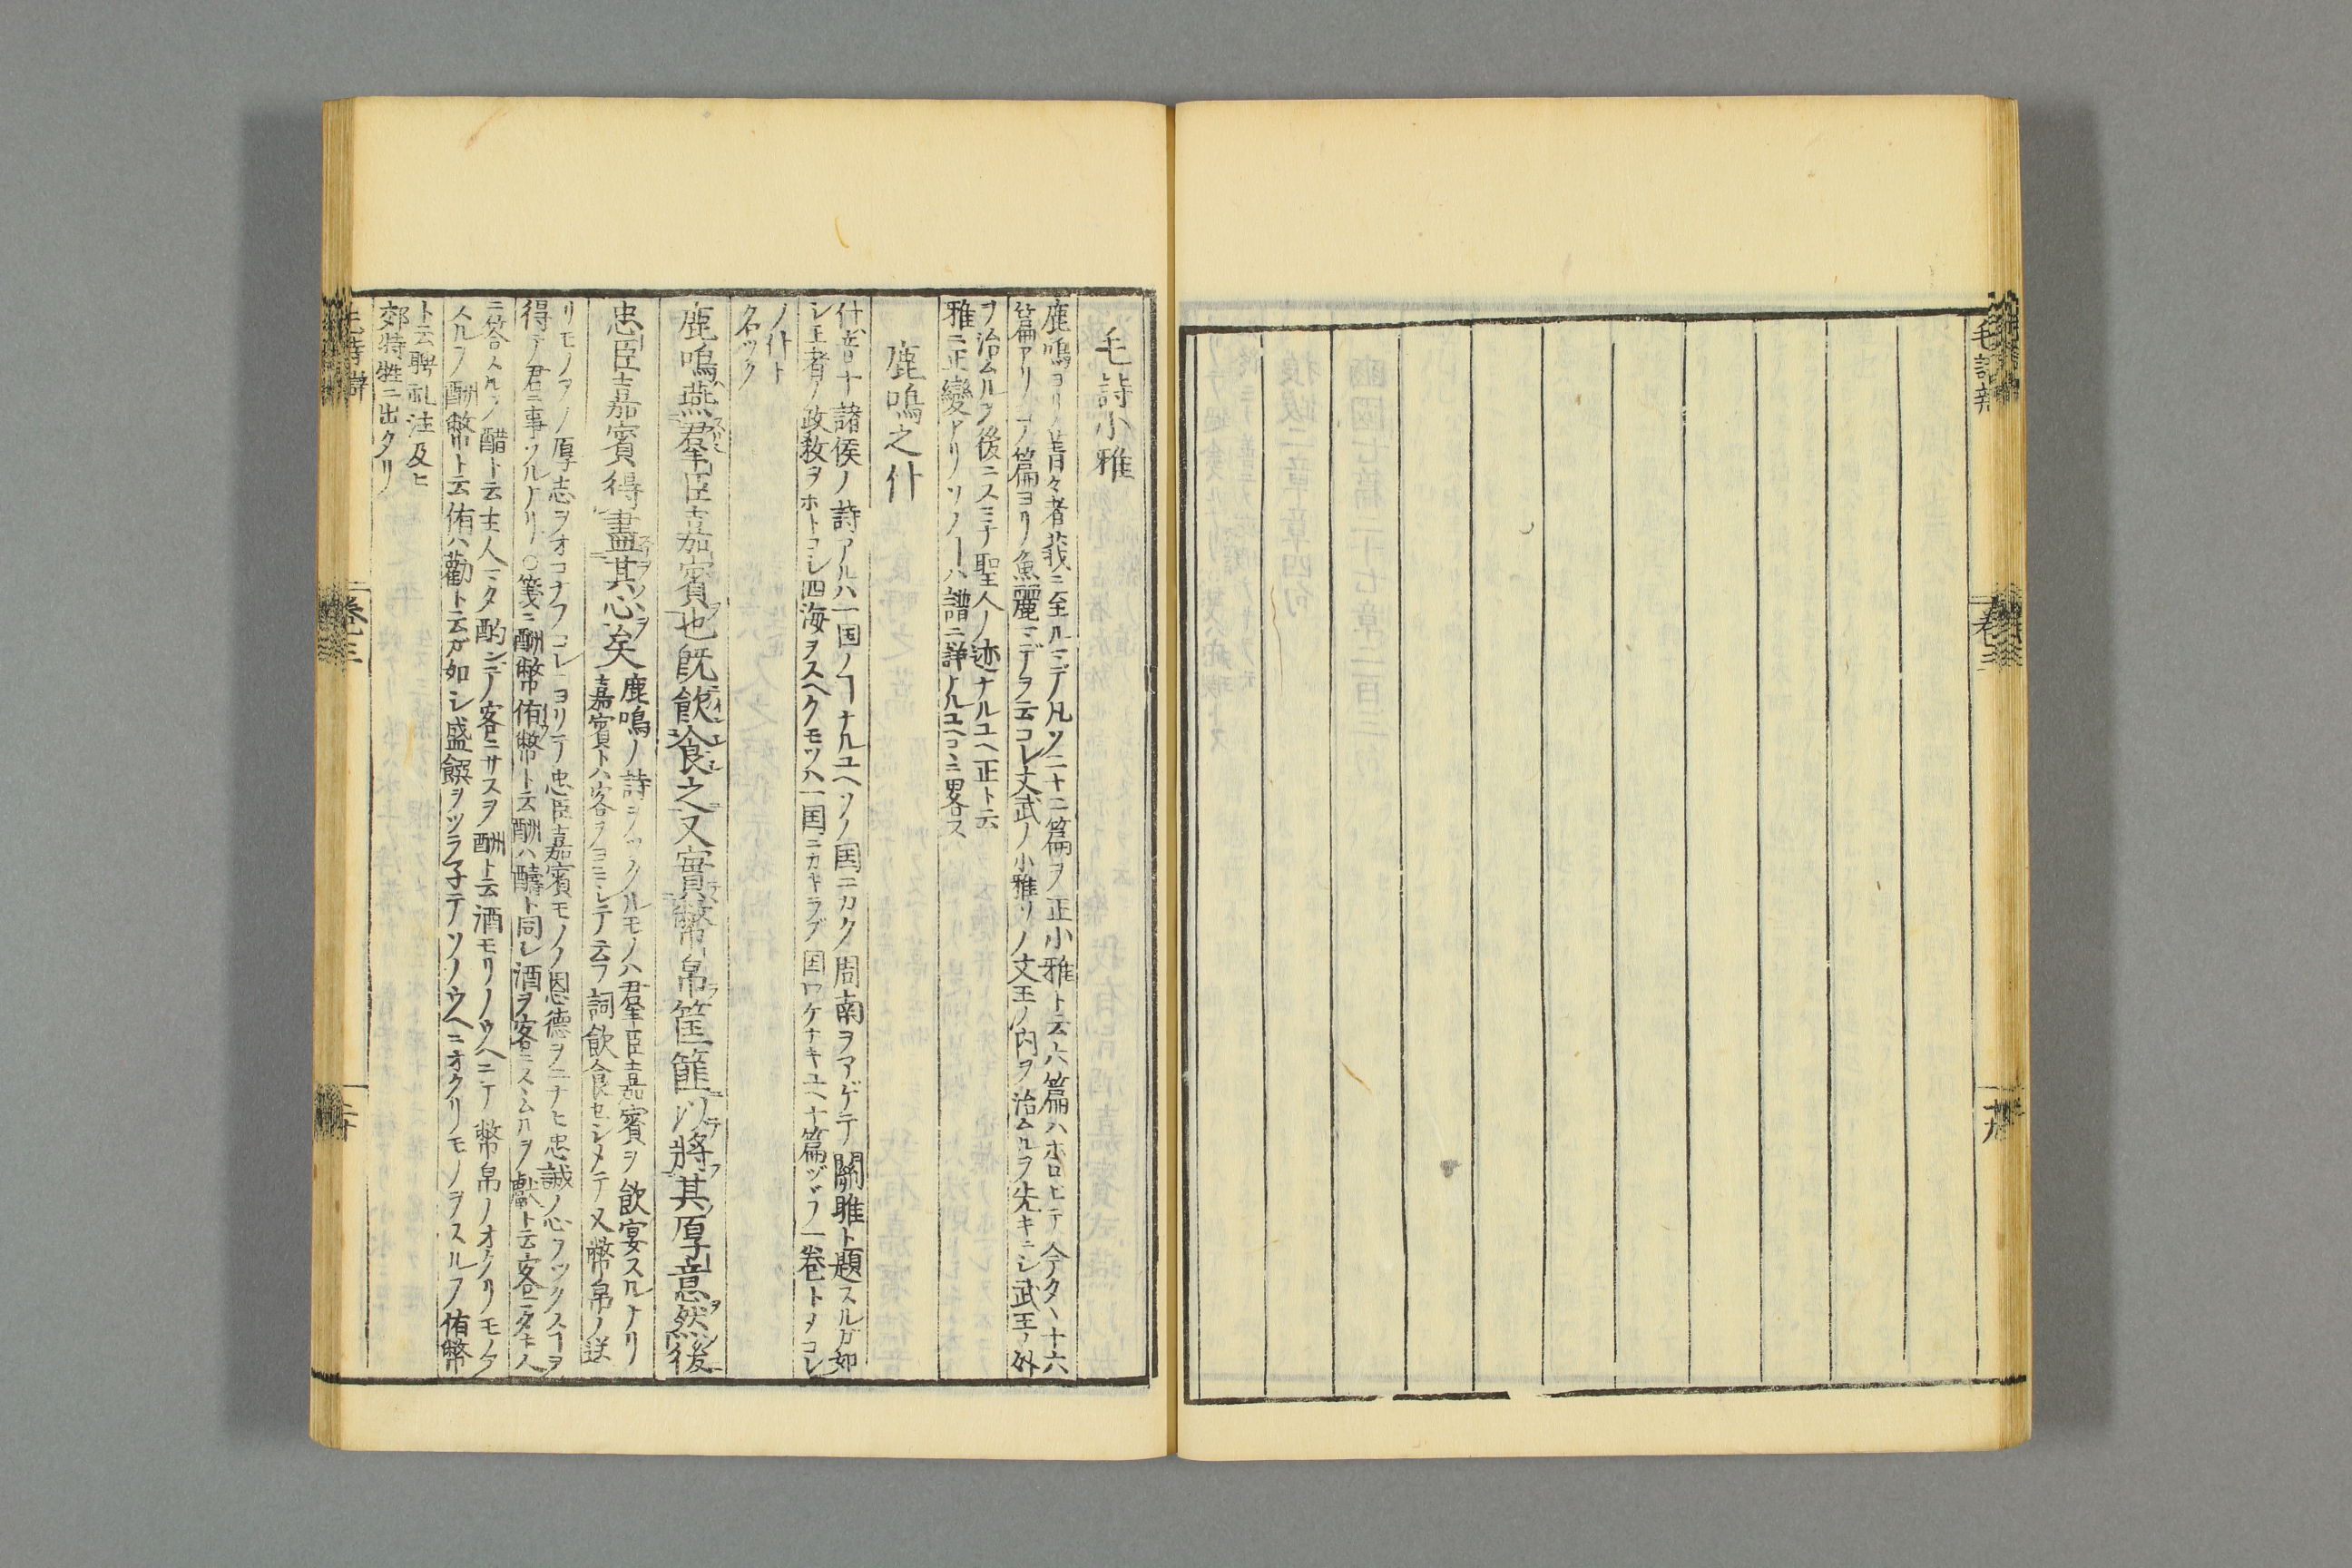 毛詩小雅
鹿鳴ヨリ菁々者莪ニ至ルマデ凡ソ二十二篇ヲ正小雅ト云六篇ハホロビテ今タヽ十六
篇アリコノ篇ヨリ魚麗マデヲ云コレ文武ノ小雅ソノ文王ノ内ヲ治ムルヲ先キニシ武王ノ外
ヲ治ムルヲ後ニスミナ聖人ノ迹ナルユヘ正ト云
雅ニ正變アリソノ ハ譜ニ詳ナルユヘコヽニ畧ス
鹿鳴之什
什音十諸侯ノ詩アルハ一国ノ ナルユヘソノ国ニカク周南ヲアゲテ關雎ト題スルガ如
シ王者ノ政敎ヲホトコシ四海ヲスヘクモツハ一国ニカキラズ国ワケナキユヘ十篇ヅヽヲ一卷トメコレ
ノ什ト
名ツク
鹿鳴燕羣臣嘉賓也既飲食之又實幣帛筐篚以將其厚意然後
忠臣嘉賓得盡其心矣
鹿鳴ノ詩ヲツクルモノハ羣臣嘉賓ヲ飲宴スルナリ
嘉賓トハ客ヲヨミシテ云フ詞飲食セシメテ又幣帛ノ送
リモノアリ厚志ヲオコナフコレニヨリテ忠臣嘉賓モソノ恩德ヲニナヒ忠誠ノ心ヲツクス ヲ
得テ君ニ事ツルナリ○箋ニ酬幣侑幣ト云酬ハ醻ト同シ酒ヲ客ニスヽムルヲ獻ト云客マタ主人
ニ答スルヲ醋ト云主人マタ酌ンデ客ニサスヲ酬ト云酒モリノウヘニテ幣帛ノオクリモノヲ
スルヲ酬幣ト云侑ハ勸ト云ガ如シ盛饌ヲツラ子テソノウヘニオクリモノヲスルヲ侑幣
ト云聘礼注及ヒ
郊特牲ニ出タリ
毛詩辯
卷三
二十
毛詩辯
卷三
十九